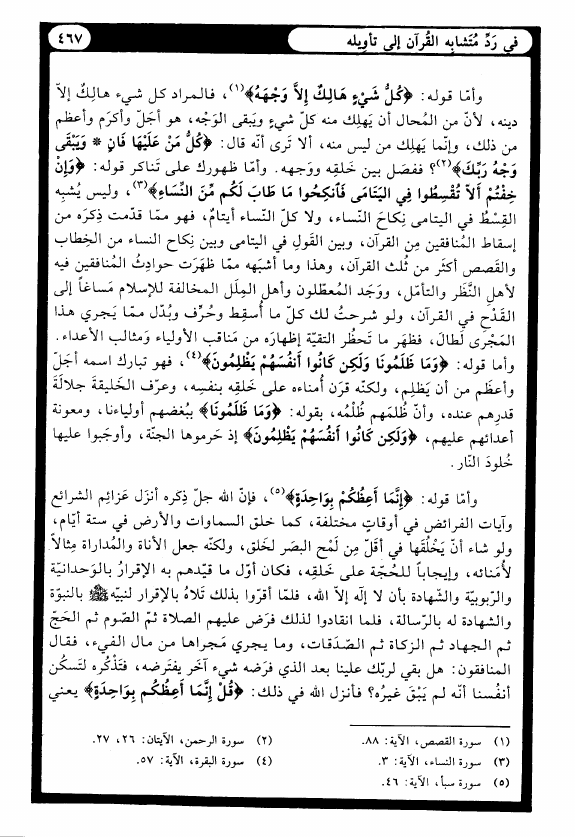 في رَدِّ مُتَشابِه القُرآن إلى تأويله
٤٦٧
وأمّا قوله: ﴿كُلُّ شَيْءٍ هَالِكٌ إِلاَّ وَجْهَهُ﴾(١)، فالمراد كل شيء هالِكٌ إلاّ
دينه، لأنّ من المُحال أن يَهلِك منه كلّ شيءٍ ويَبقى الوَجْه، هو أجَلّ وأكرَم وأعظم
من ذلك، وإنّما يَهلِك من ليس منه، ألا تَرى أنّه قال: ﴿كُلُّ مَنْ عَلَيْهَا فَانٍ * وَيَبْقَى
وَجْهُ رَبِّكَ﴾(٢)؟ ففصَل بين خَلقِه ووَجهه. وأمّا ظهورك على تَناكر قوله: ﴿وَإِنْ
خِفْتُمْ أَلاَّ تُقْسِطُوا فِي الْيَتَامَى فَأَنكِحُوا مَا طَابَ لَكُم مِّنَ النِّسَاءِ﴾(٣)، وليس يُشبِه
القِسْطُ في اليتامى نِكاحَ النِّساء، ولا كلّ النِّساء أيتامٌ، فهو ممّا قدّمت ذِكرَه من
إسقاط المُنافقين مِن القرآن، وبين القَولِ في اليتامى وبين نِكاح النساء من الخِطاب
والقَصص أكثَر من ثُلث القرآن، وهذا وما أشبَهه ممّا ظهَرَت حوادِثُ المُنافقين فيه
لأهلِ النَّظر والتأمّل، ووَجَد المُعطِّلون وأهل المِلَل المخالفة للإسلام مَساغاً إلى
القَدْحِ في القرآن، ولو شرحتُ لك كلّ ما أُسقِط وحُرِّف وبُدِّل ممّا يَجري هذا
المَجْرى لَطالَ، فظهَر ما تَحظُر التقيّة إظهارَه من مَناقب الأولياء ومَثالب الأعداء.
وأما قوله: ﴿وَمَا ظَلَمُونَا وَلَكِن كَانُوا أَنفُسَهُمْ يَظْلِمُونَ﴾(٤)، فهو تبارك اسمه أجَلّ
وأعظَم من أن يَظلِم، ولكنّه قرَن أُمناءه على خَلقِه بنفسِه، وعرّف الخَليقةَ جلالةَ
قدرِهم عنده، وأنّ ظُلمَهم ظُلْمُه، بقوله: ﴿وَمَا ظَلَمُونَا﴾ ببُغضهم أولياءَنا، ومعونة
أعدائهم عليهم، ﴿وَلَكِن كَانُوا أَنفُسَهُمْ يَظْلِمُونَ﴾ إذ حَرموها الجنّة، وأوجَبوا عليها
خُلودَ النّار.
وأمّا قوله: ﴿إِنَّمَا أَعِظُكُمْ بِوَاحِدَةٍ﴾(٥)، فإنّ الله جلّ ذِكره أنزَل عَزائم الشرائع
وآيات الفرائض في أوقاتٍ مختلفة، كما خلق السماوات والأرض في ستة أيّام،
ولو شاء أنْ يَخْلُقَها في أقلّ مِن لَمْحِ البَصر لخَلق، ولكنّه جعل الأناة والمُداراة مِثالاً
لأُمَنائه، وإيجاباً للحُجّة على خَلقِه، فكان أوّل ما قيّدهم به الإقرارُ بالوَحدانية
والرّبوبيّة والشَّهادة بأن لا إلٰه إلاّ الله، فلمّا أقرّوا بذلك تَلاهُ بالإقرار لنبيّه ﷺ بالنبوّة
والشهادة له بالرِّسالة، فلما انقادوا لذلك فرَض عليهم الصلاة ثمّ الصّوم ثم الحَجّ
ثم الجهاد ثم الزكاة ثم الصّدَقات، وما يجري مَجراها من مال الفيء، فقال
المنافقون: هل بقي لربّك علينا بعد الذي فرَضه شيء آخر يفتَرِضه، فتَذْكُره لتَسكُن
أنفسنا أنّه لم يَبْقَ غيرُه؟ فأنزل الله في ذلك: ﴿قُلْ إِنَّمَا أَعِظُكُم بِوَاحِدَةٍ﴾ يعني
(١) سورة القصص، الآية: ٨٨.
(٢) سورة الرحمن، الآيتان: ٢٦، ٢٧.
(٣) سورة النساء، الآية: ٣.
(٤) سورة البقرة، الآية: ٥٧.
(٥) سورة سبأ، الآية: ٤٦.